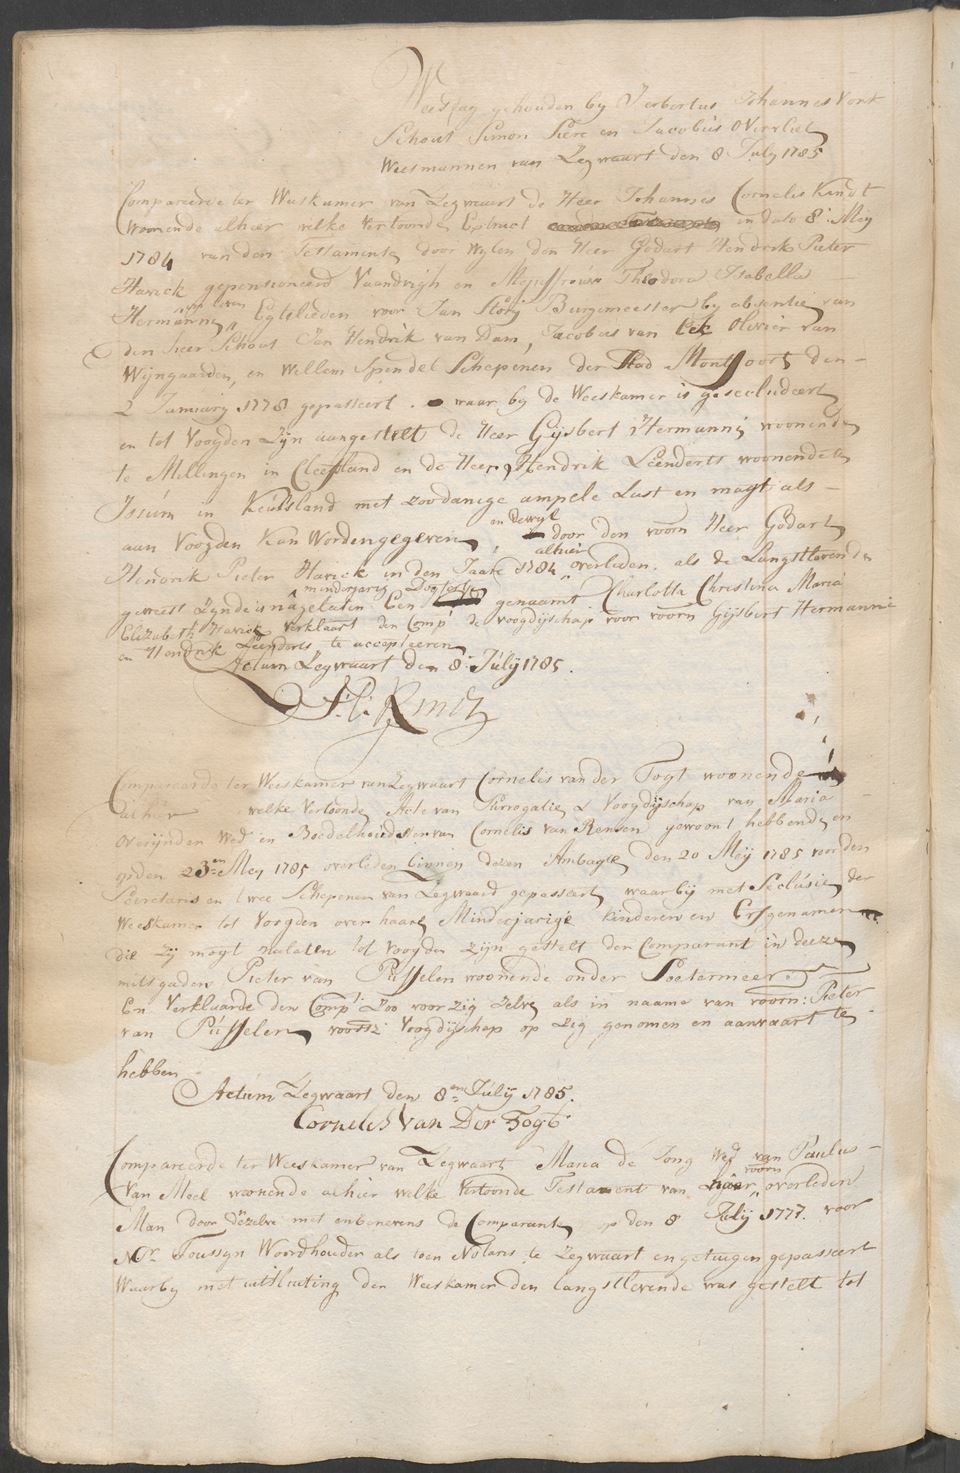 Weesdag gehouden by Herbertus Johannes Vonk
Schout Simon Piere en Jacobus Overvliet
Weesmannen van Zegwaart den 8 July 1785
Compareerde ter Weeskamer van Zegwaart de Heer Johannes Cornelis Kindt
woonende alhier welke vertoonde Extract in dato 8: Mey
1784 van den Testamente door wylen den Heer Godart Hendrik Pieter
Havick gepensioneerd Vaandrigh en Mejuffrouw Theodora Isabella
Hermanni Egtelieden voor Jan Story Burgemeester by absentie van
den heer Schout Jan Hendrik van Dam, Jacobus van Eck Olivier van
Wijngaarden, en Willem Spendel Schepenen der Stad Montfoort den
2 January 1778 gepasseert. waar by de Weeskamer is gesecludeert
en tot Voogden zyn aangestelt de Heer Gijsbert Hermanni woonende
te Millingen in Cleefsland en de Heer Hendrik Leenderts woonende te
Issum in Keulsland met zoodanige ampele Last en magt als
aan Voogden Kan Worden gegeven, en dewyl door den voorn Heer Godart
Hendrik Pieter Havick in den Jaare 1784 alhier overleden. als de Langstlevende
geweest zynde is nagelaten Een minderjarig Dogtertje genaamt Charlotta Christina Maria
Elizabeth Havick verklaart den Comp.t de voogdijschap voor voorn Gijsbert Hermanni
en Hendrik Leenderts te accepteeren
Actum Zegwaart den 8: Julij 1785.
Compareerde ter Weeskamer van Zegwaart Cornelis van der Togt woonende
alhier welke Vertoonde Acte van Surrogatie & Voogdijschap van Maria
Overijnden Wed: en Boedelhoudster van Cornelis van Rensen gewoont hebbende en
op den 23en Mey 1785 overleden binnen dezen Ambagte den 20 Meij 1785 voor den
Secretaris en twee Schepenen van Zegwaard gepasseert waar bij met Seclusie der
Weeskamer tot Voogden over haare Minderjarige kinderen en Erfgenamen
die zij mogt nalaten tot Voogden zijn gestelt den Comparant in deeze
mitsgaders Pieter van Pusselen woonende onder Soetermeer
En Verklaarde den Comp.t Zoo voor zig zelve als in naame van voorn: Pieter
van Pusselen voorsz: Voogdijschap op zig genomen en aanvaart te
hebben
Actum Zegwaart den 8en Julij 1785.
Cornelis Van Der Togt
Compareerde ter Weeskamer van Zegwaart Maria de Jong Wed van Paulus
Van Meel woonende alhier welke Vertoonde Testament van haar voorn overleden
Man door denzelve met en benevens de Comparante op den 8 Julij 1777. voor
Mr. Toussyn Woordhouder als toen Notaris te Zegwaart en getuigen gepasseert
Waarby met uitsluiting der Weeskamer den langstlevende was gestelt tot